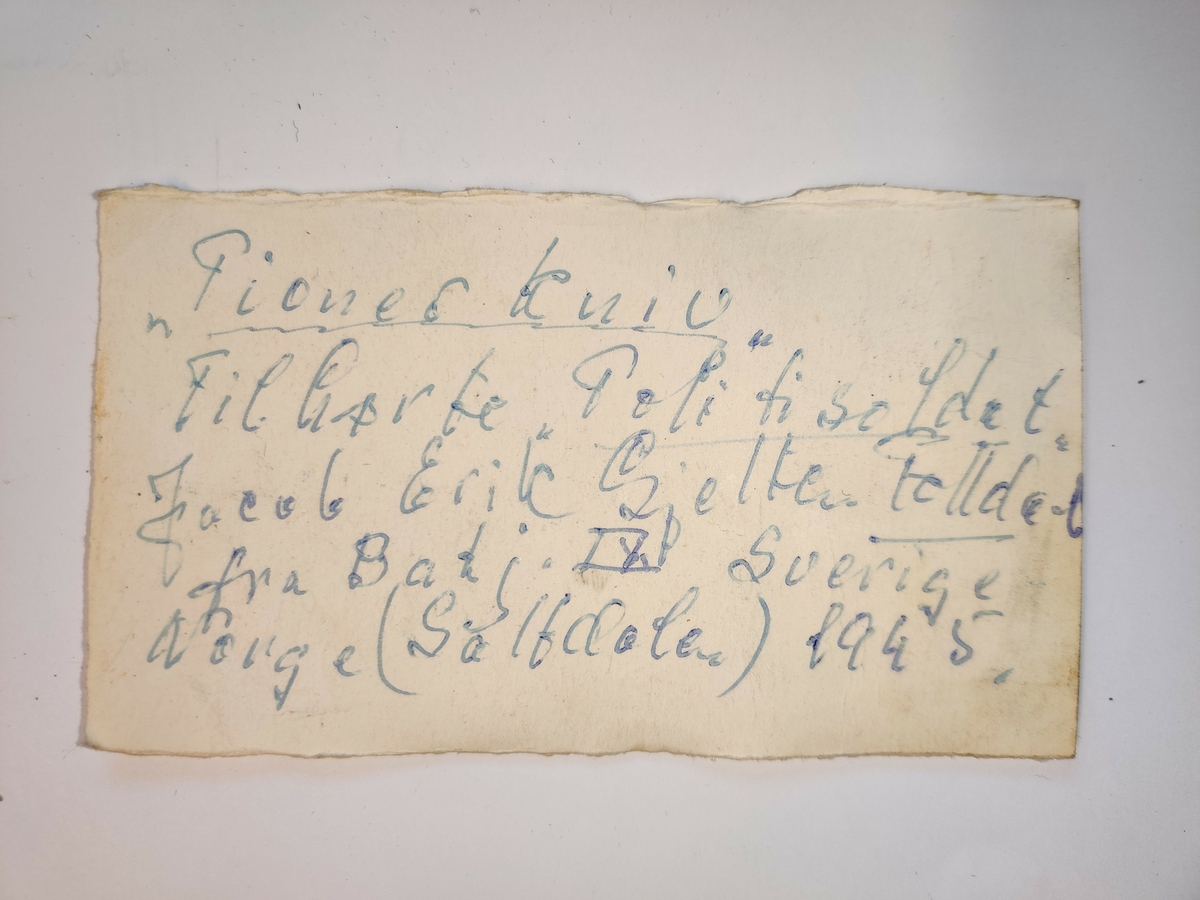 „Pioner kniv"
Tilhørte „Politisoldat"
Jacob Erik Gjelten
fra Batj. Sverige
Norge (Saltdalen) 1945.